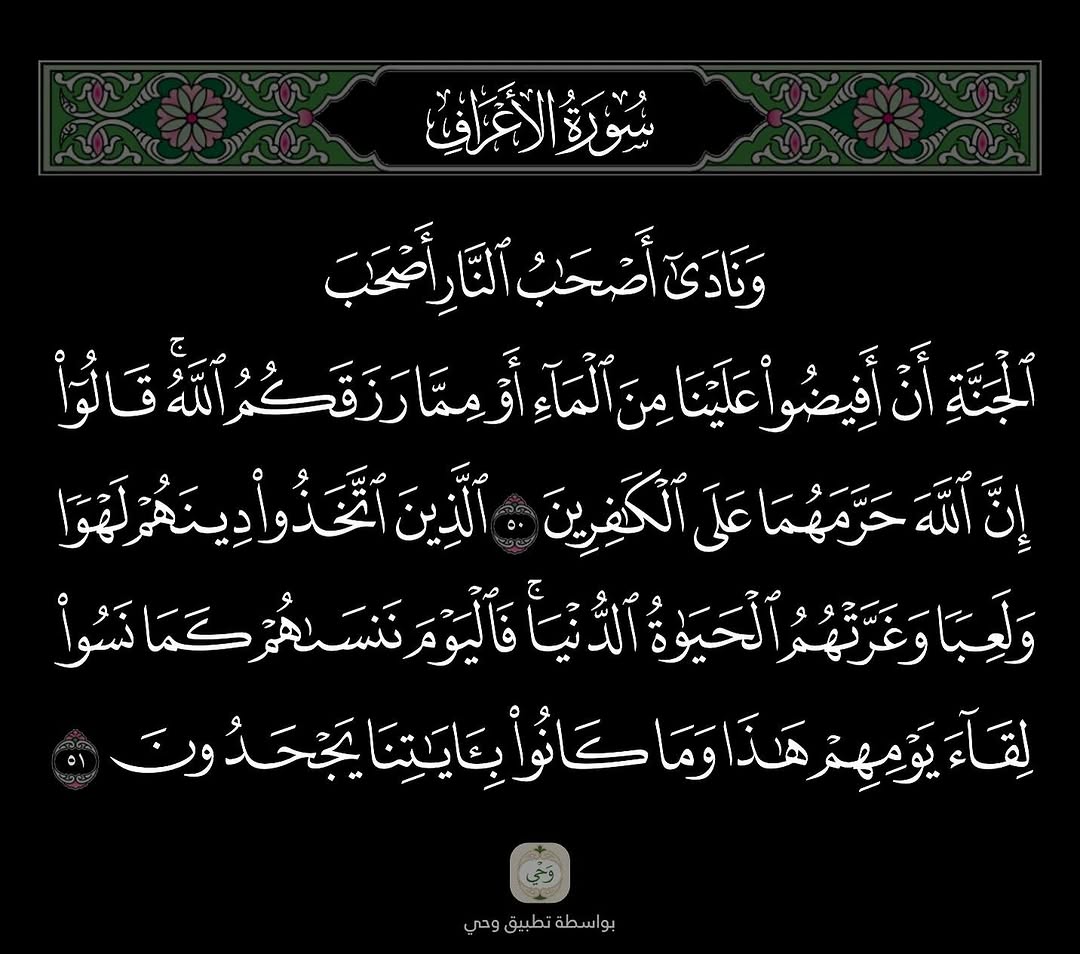 سُورَةُ الأَعْرَافِ
وَنَادَىٰٓ أَصْحَٰبُ ٱلنَّارِ أَصْحَٰبَ
ٱلْجَنَّةِ أَنْ أَفِيضُوا۟ عَلَيْنَا مِنَ ٱلْمَآءِ أَوْ مِمَّا رَزَقَكُمُ ٱللَّهُ ۚ قَالُوٓا۟
إِنَّ ٱللَّهَ حَرَّمَهُمَا عَلَى ٱلْكَٰفِرِينَ ٥٠ ٱلَّذِينَ ٱتَّخَذُوا۟ دِينَهُمْ لَهْوًا
وَلَعِبًا وَغَرَّتْهُمُ ٱلْحَيَوٰةُ ٱلدُّنْيَا ۚ فَٱلْيَوْمَ نَنسَىٰهُمْ كَمَا نَسُوا۟
لِقَآءَ يَوْمِهِمْ هَٰذَا وَمَا كَانُوا۟ بِـَٔايَٰتِنَا يَجْحَدُونَ ٥١
وَحْي
بواسطة تطبيق وحي